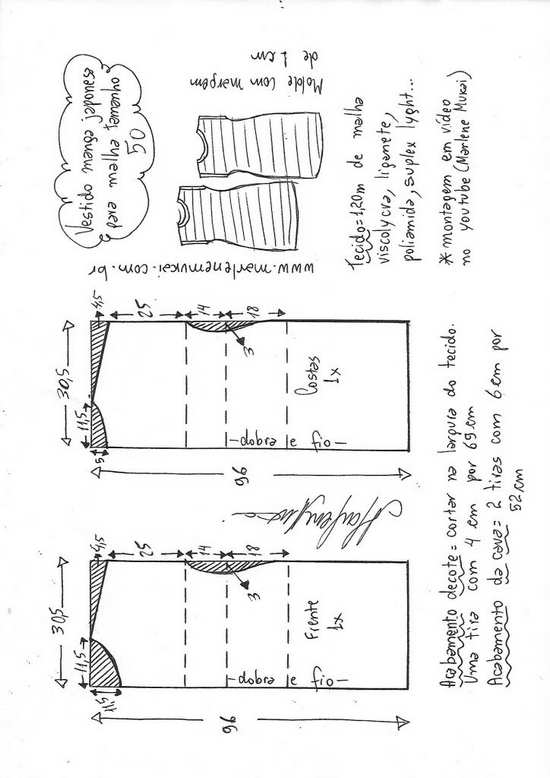 Vestido manga japonesa
para malha tamanho
50
Molde com margem
de 1 cm
www.marlenemukai.com.br
Tecido = 1,20m de malha
viscolycra, liganete,
poliamida, suplex lyght...
* montagem em vídeo
no youtube (Marlene Mukai)
30,5
11,5
4,5
25
14
18
3
5
Costas
1x
dobra e fio
96
30,5
11,5
4,5
25
14
18
3
Frente
1x
dobra e fio
96
Acabamento decote = cortar na largura do tecido.
Uma tira com 4 cm por 69 cm
Acabamento da cava = 2 tiras com 6 cm por
52 cm